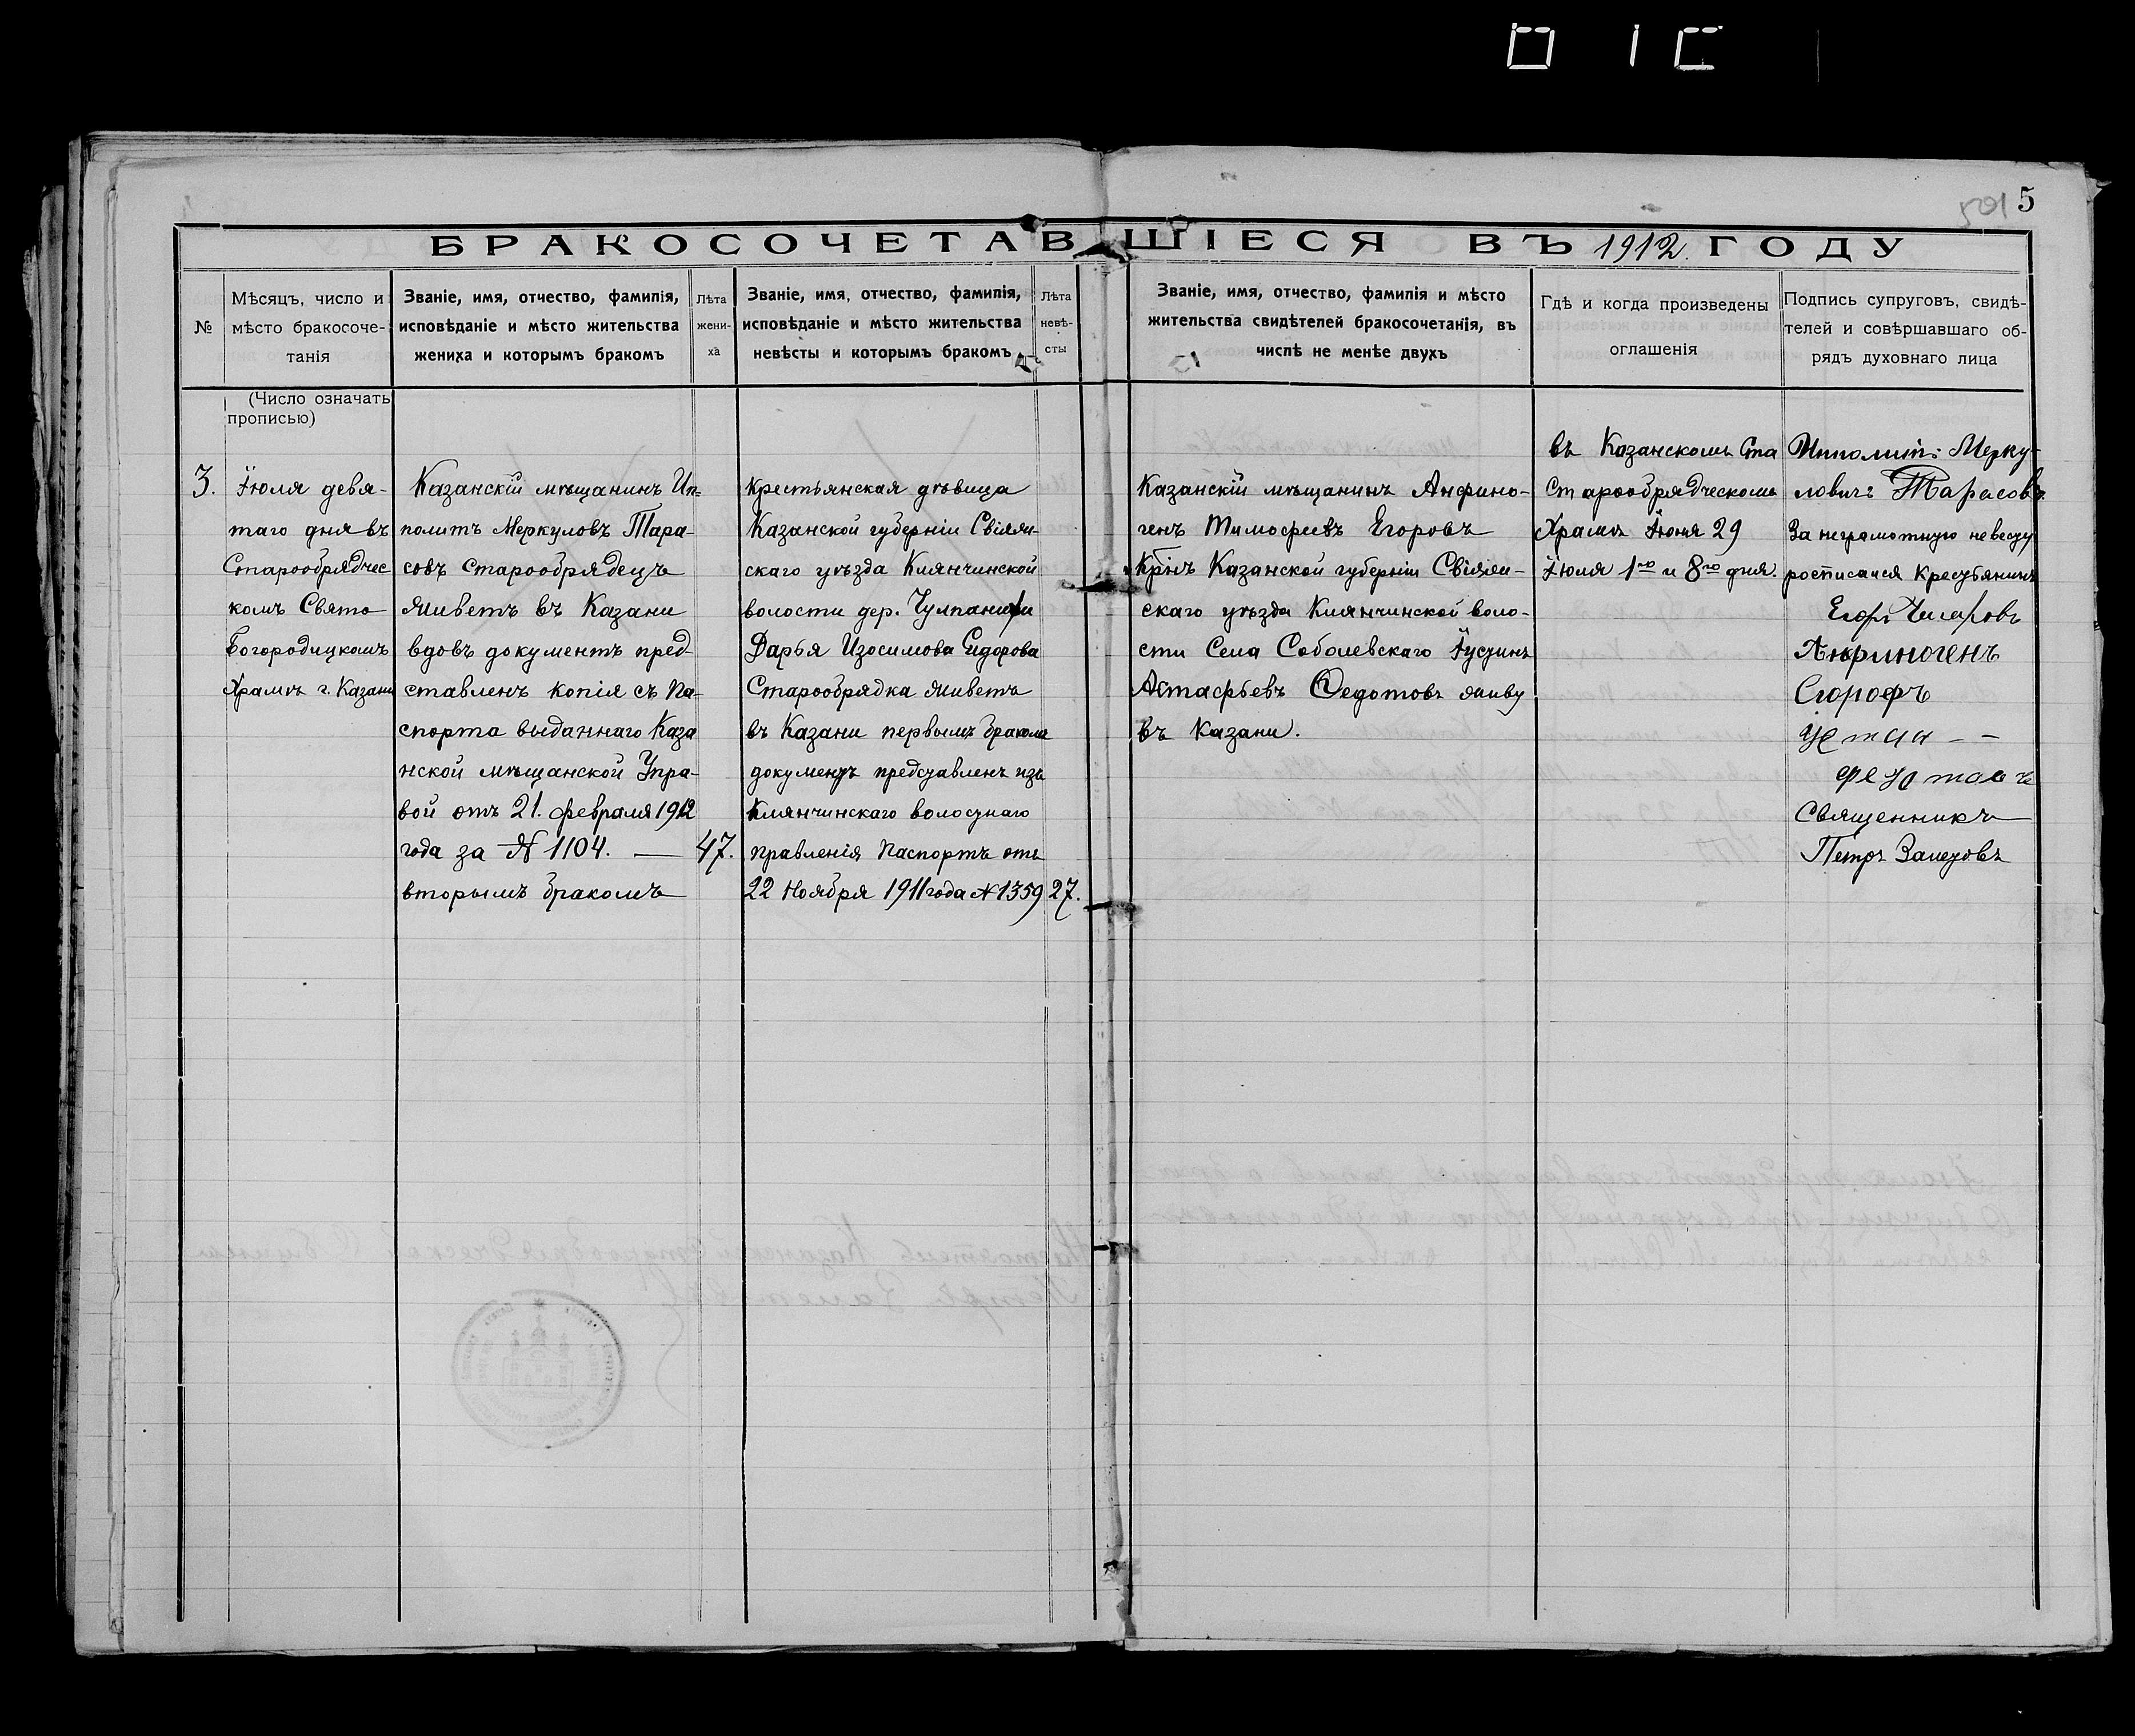 5
501
БРАКОСОЧЕТАВШІЕСЯ ВЪ 1912. ГОДУ
№
Мѣсяцъ, число и
мѣсто бракосоче-
танія
Званіе, имя, отчество, фамилія,
исповѣданіе и мѣсто жительства
жениха и которымъ бракомъ
Лѣта
жени-
ха
Званіе, имя, отчество, фамилія,
исповѣданіе и мѣсто жительства
невѣсты и которымъ бракомъ
Лѣта
невѣ-
сты
Званіе, имя, отчество, фамилія и мѣсто
жительства свидѣтелей бракосочетанія, въ
числѣ не менѣе двухъ
Гдѣ и когда произведены
оглашенія
Подпись супруговъ, свидѣ-
телей и совѣршавшаго об-
рядъ духовнаго лица
(Число означать
прописью)
3.
Іюля девя-
таго дня въ
Старообрядчес
комъ Свято
Богородицкомъ
Храмѣ г. Казани
Казанскій мѣщанинъ Ип-
политъ Меркуловъ Тара-
совъ старообрядецъ
живетъ въ Казани
вдовъ документъ пред-
ставленъ копія съ па-
спорта выданнаго Каза
нской мѣщанской Упра-
вой отъ 21. февраля 1912
года за № 1104. —
вторымъ бракомъ
47.
Крестьянская дѣвица
Казанской губерніи Свіяж-
скаго уѣзда Клянчинской
волости дер. Чулпанихи
Дарья Изосимова Сидорова
Старообрядка живетъ
въ Казани первымъ бракомъ
документъ представленъ изъ
Клянчинскаго волостнаго
правленія Паспортъ отъ
22 Ноября 1911 года № 1359
27.
Казанскій мѣщанинъ Анфино-
генъ Тимофеевъ Егоровъ
Кр̃нъ Казанской губерніи Свіяж-
скаго уѣзда Клянчинской воло-
сти Села Соболевскаго Іустинъ
Астафьевъ Федотовъ живу
въ Казани.
въ Казанскомъ Ста
Старообрядческомъ
Храмѣ Іюня 29
Іюля 1го и 8го дня.
Иполитъ Мерку-
ловичъ Тарасовъ
За неграмотную невесту
росписался Крестьянинъ
Егоръ
Анфиногенъ
Єгорофъ
Устин
федотовъ
Священникъ
Петръ Залетовъ